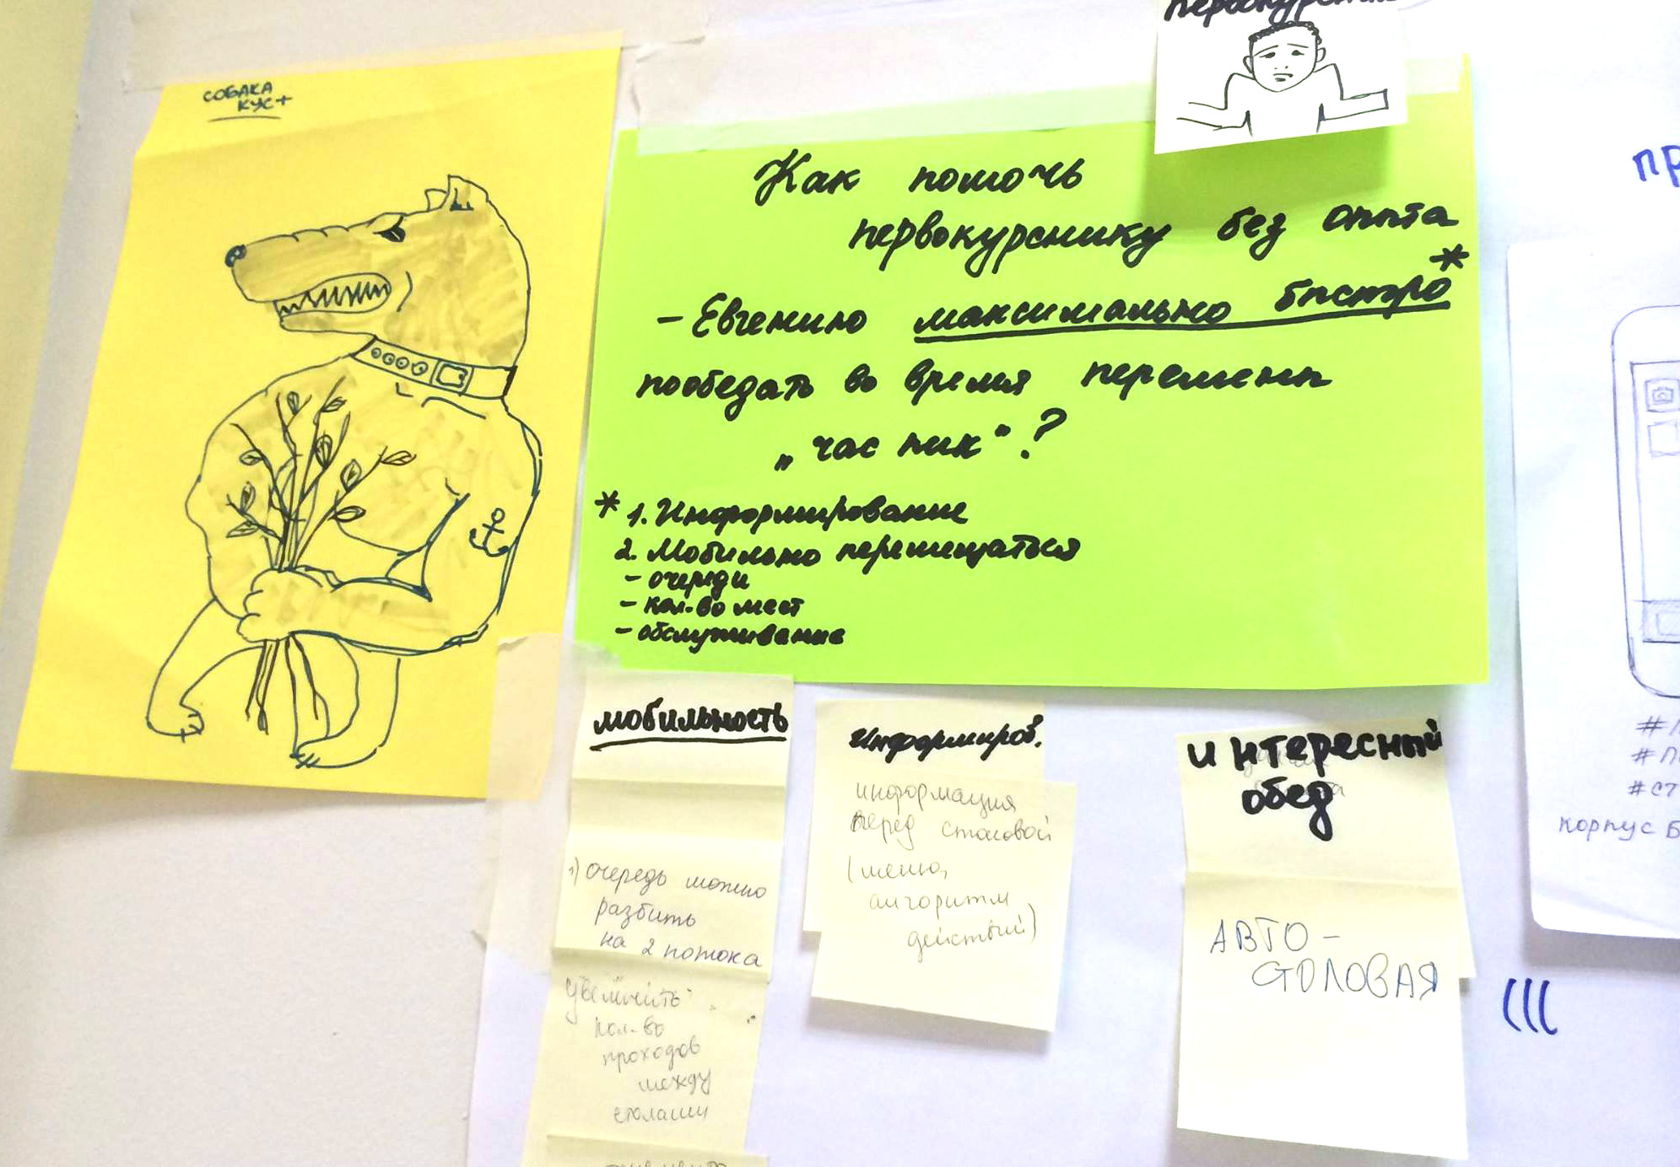 СОБАКА
КУС+
Как помочь
первокурснику без опыта
- Евгению максимально быстро*
пообедать во время перемены
„час пик"?
* 1. Информирование
2. Мобильно перемещаться
- очереди
- кол-во мест
- обслуживание
мобильность
1) очередь можно
разбить
на 2 потока
увеличить
кол-во
проходов
между
столами
Информиров.
информация
перед столовой
(меню,
алгоритм
действий)
интересный
обед
АВТО-
СТОЛОВАЯ
корпус Б